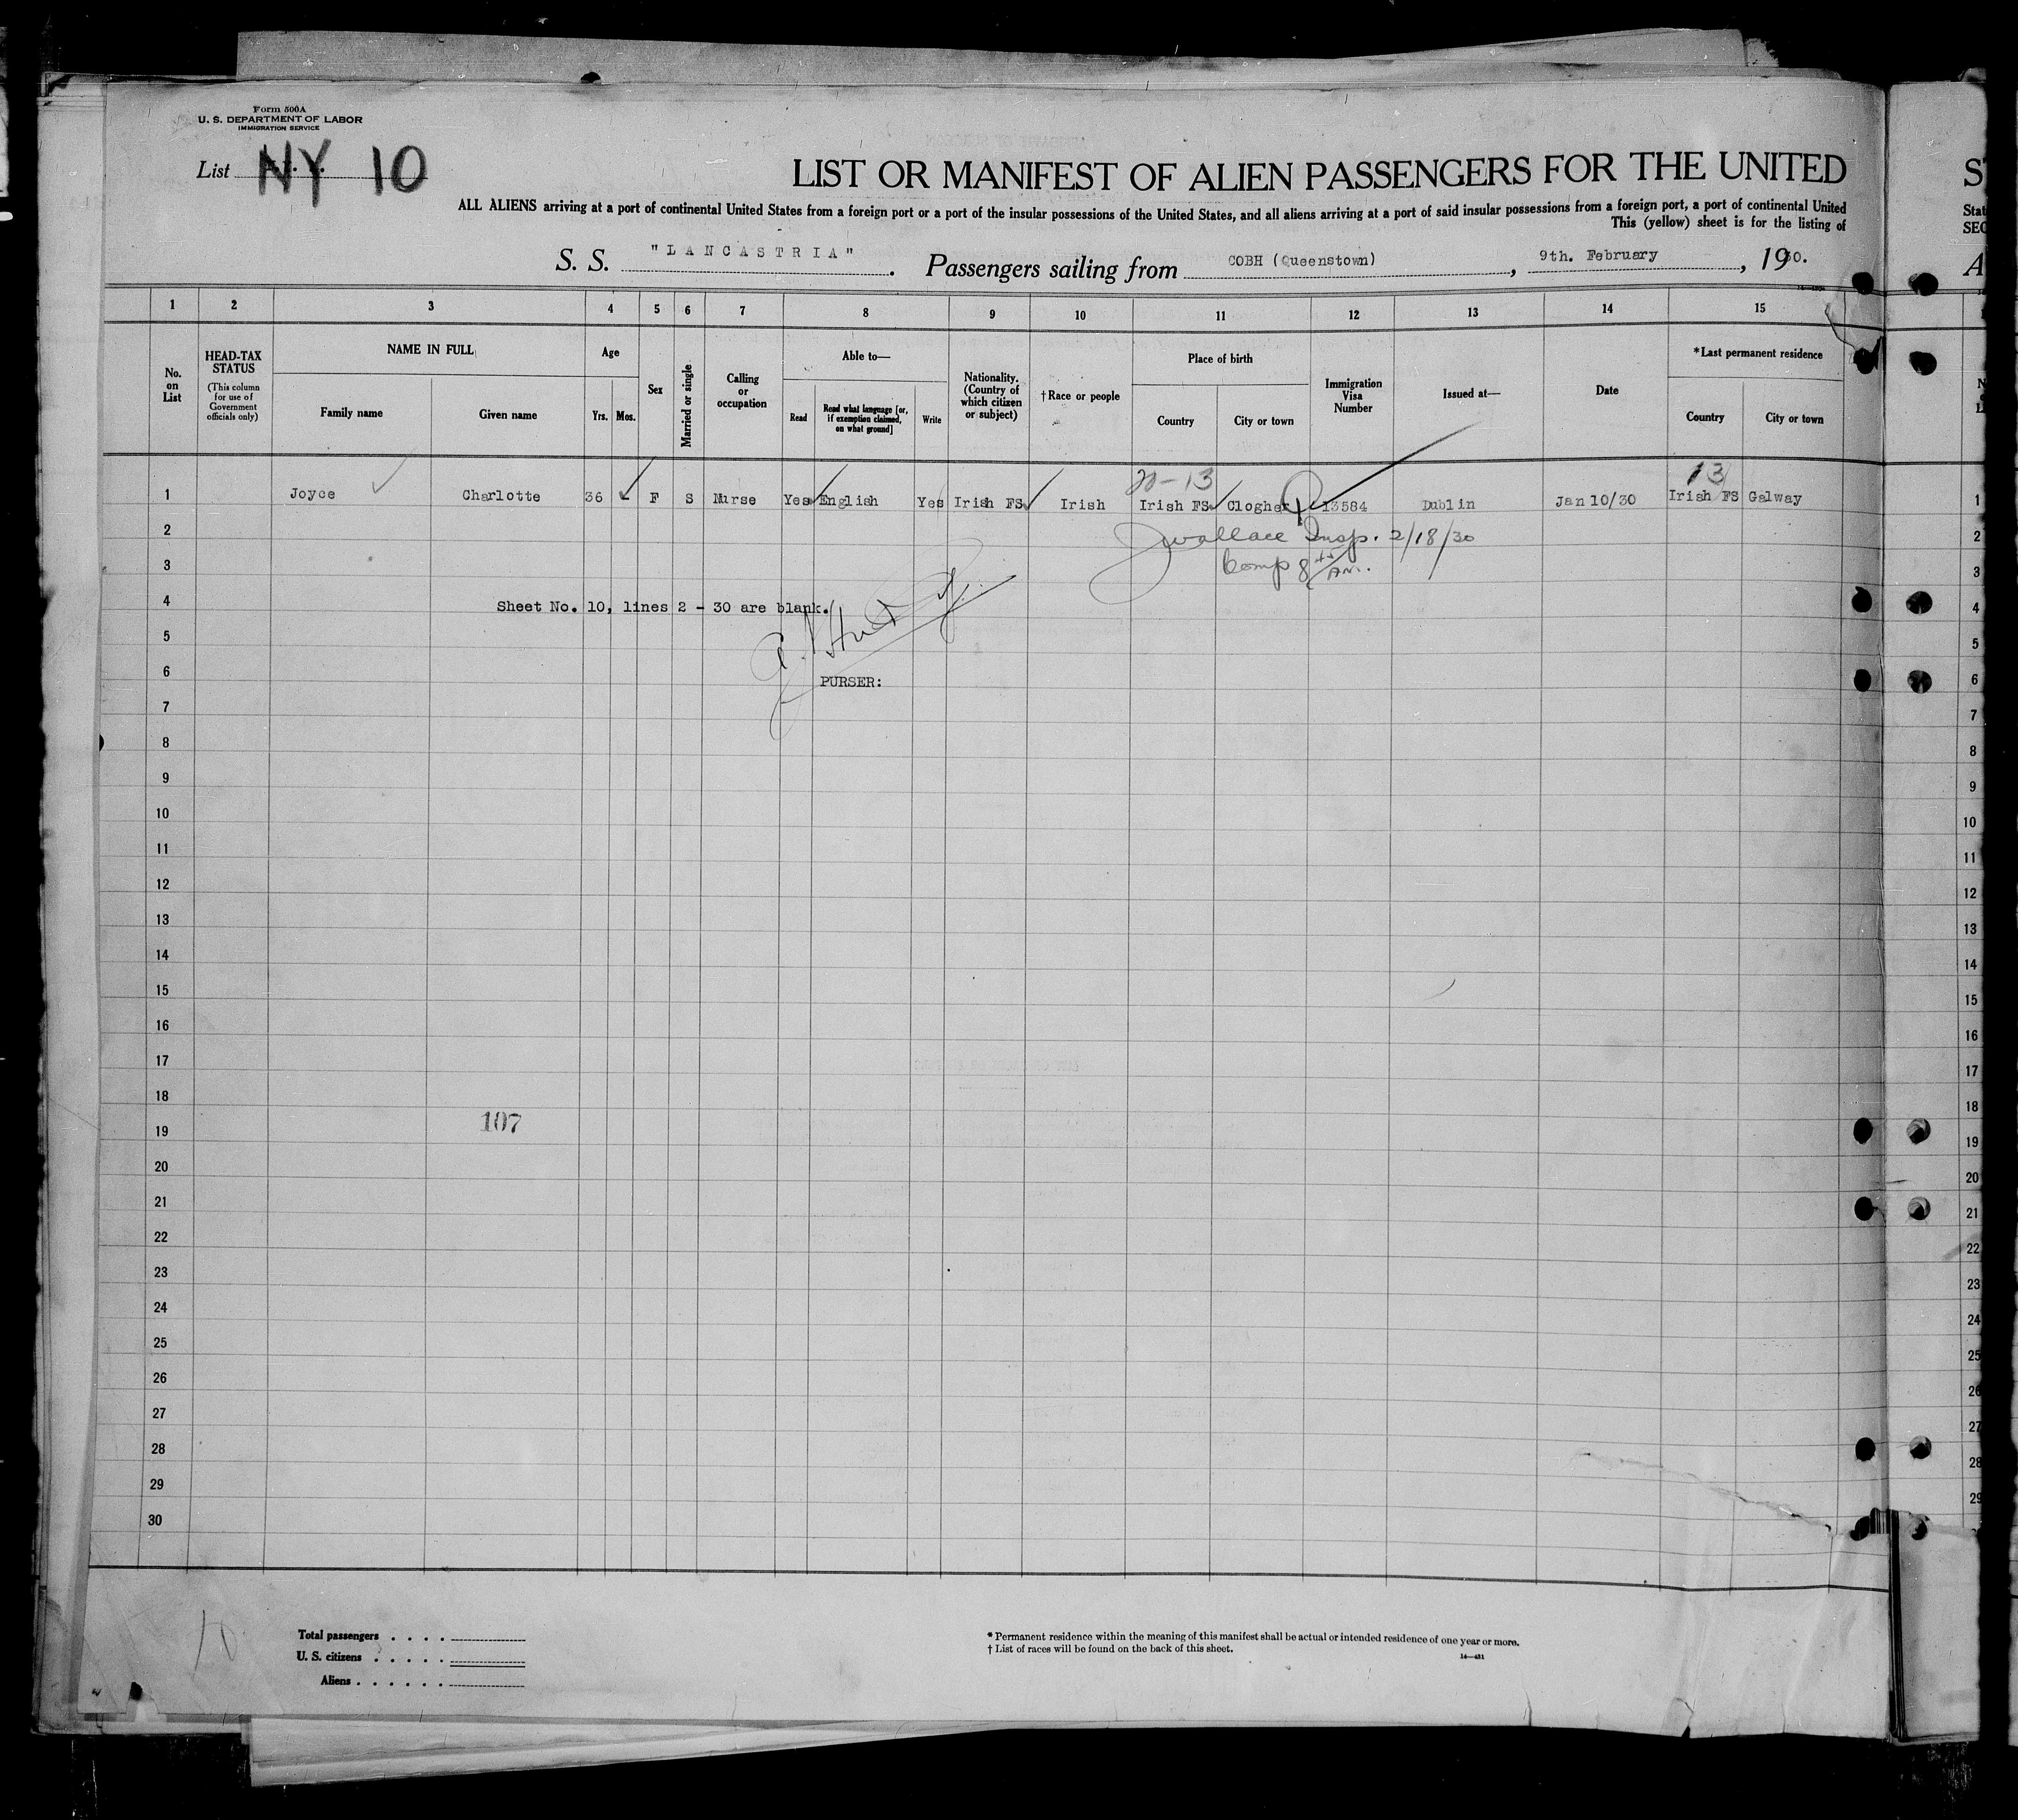 Form 500A
U. S. DEPARTMENT OF LABOR
IMMIGRATION SERVICE
List NY 10
LIST OR MANIFEST OF ALIEN PASSENGERS FOR THE UNITED
ALL ALIENS arriving at a port of continental United States from a foreign port or a port of the insular possessions of the United States, and all aliens arriving at a port of said insular possessions from a foreign port, a port of continental United
This (yellow) sheet is for the listing of
S. S. "LANCASTRIA". Passengers sailing from COBH (Queenstown), 9th. February, 1930.
1 2 3 4 5 6 7 8 9 10 11 12 13 14 15
No. on List
HEAD-TAX STATUS (This column for use of Government officials only)
NAME IN FULL
Family name Given name
Age
Yrs. Mos.
Sex
Married or single
Calling or occupation
Able to—
Read Read what language [or, if exemption claimed, on what ground] Write
Nationality. (Country of which citizen or subject)
†Race or people
Place of birth
Country City or town
Immigration Visa Number
Issued at—
Date
*Last permanent residence
Country City or town
20-13 13
1 Joyce Charlotte 36 - F S Nurse Yes English Yes Irish FS Irish Irish FS Clogher 13584 Dublin Jan 10/30 Irish FS Galway 1
2 Wallace Insp. 2/18/30 2
3 Comp AM. 3
4 Sheet No. 10, lines 2 - 30 are blank. 4
5 5
6 PURSER: 6
7 7
8 8
9 9
10 10
11 11
12 12
13 13
14 14
15 15
16 16
17 17
18 18
19 107 19
20 20
21 21
22 22
23 23
24 24
25 25
26 26
27 27
28 28
29 29
30
10
Total passengers . . . .
U. S. citizens . . . . .
Aliens . . . . . .
* Permanent residence within the meaning of this manifest shall be actual or intended residence of one year or more.
† List of races will be found on the back of this sheet.
14—421